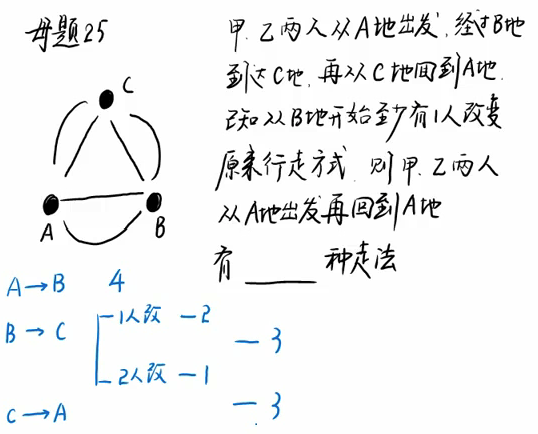 母题25
甲.乙两人从A地出发,经过B地
到达C地,再从C地回到A地.
已知从B地开始至少有1人改变
原来行走方式,则甲.乙两人
从A地出发再回到A地
有______种走法
C
A
B
A→B 4
B→C
1人改 — 2
— 3
2人改 — 1
C→A — 3